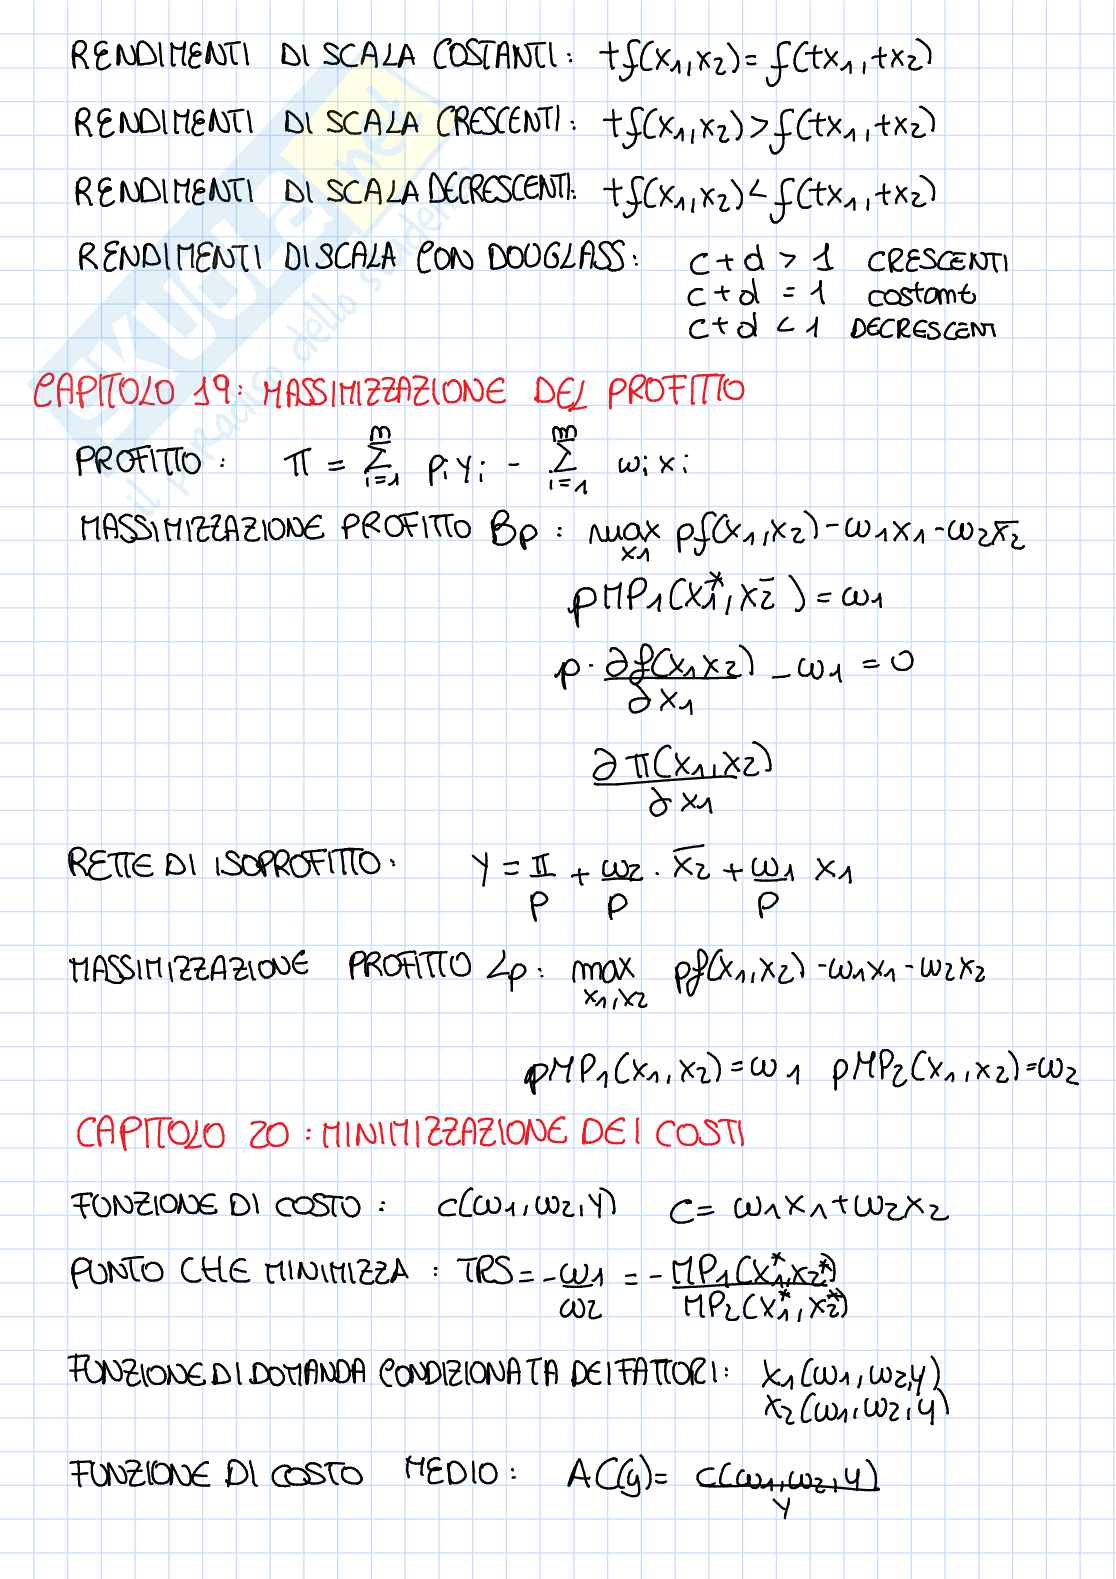 RENDIMENTI DI SCALA COSTANTI: tf(x1,x2)= f(tx1,tx2)
RENDIMENTI DI SCALA CRESCENTI: tf(x1,x2)>f(tx1,tx2)
RENDIMENTI DI SCALA DECRESCENTI: tf(x1,x2)<f(tx1,tx2)
RENDIMENTI DI SCALA CON DOUGLASS: c+d > 1 CRESCENTI
c+d = 1 costanti
c+d < 1 DECRESCENTI
CAPITOLO 19: MASSIMIZZAZIONE DEL PROFITTO
PROFITTO: π = Σ(i=1, n) piyi - Σ(i=1, m) ωixi
MASSIMIZZAZIONE PROFITTO Bp: max x1 pf(x1,x2)-ω1x1-ω2x̄2
pMP1(x1*,x̄2) = ω1
p · ∂f(x1x2)/∂x1 - ω1 = 0
∂π(x1,x2)/∂x1
RETTE DI ISOPROFITTO: Y = π/p + ω2/p · x̄2 + ω1/p x1
MASSIMIZZAZIONE PROFITTO Lp: max x1,x2 pf(x1,x2)-ω1x1-ω2x2
pMP1(x1,x2)=ω1 pMP2(x1,x2)=ω2
CAPITOLO 20: MINIMIZZAZIONE DEI COSTI
FUNZIONE DI COSTO: c(ω1,ω2,Y) C= ω1x1+ω2x2
PUNTO CHE MINIMIZZA: TRS= -ω1/ω2 = - MP1(x1*,x2*)/MP2(x1*,x2*)
FUNZIONE DI DOMANDA CONDIZIONATA DEI FATTORI: x1(ω1,ω2,y)
x2(ω1,ω2,y)
FUNZIONE DI COSTO MEDIO: AC(y)= c(ω1,ω2,y)/Y
SKUOLA.net
il paradiso dello studente